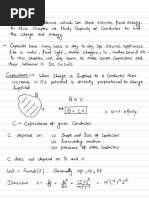 dence which can store electric field energy.
In this Chapter we study Capacity of Conductor to hold
the Charge and energy
Capacitor have many uses in day-to-day for electric appliances.
like in motor, flash light, mobile chargers, tv, radios tuned etc.
To this chapter we gona learn to make simple Capacitors and
their behavior in DC Circuits
Capacitance :- When charge is Supplied to a Conductor then
increase in it's potential is directly proportional to charge
supplied
Q ∝ V
** Q = CV
O → +∞ infinity.
C → Capacitance of given Conductor
C depend on
(i) Shape and Size of Conductor
(ii) Surrounding medium
(iii) Presence of Other Conductor
C does not depend on Q
Unit → Farad (F) Generally μF, nF, PF
Dimension